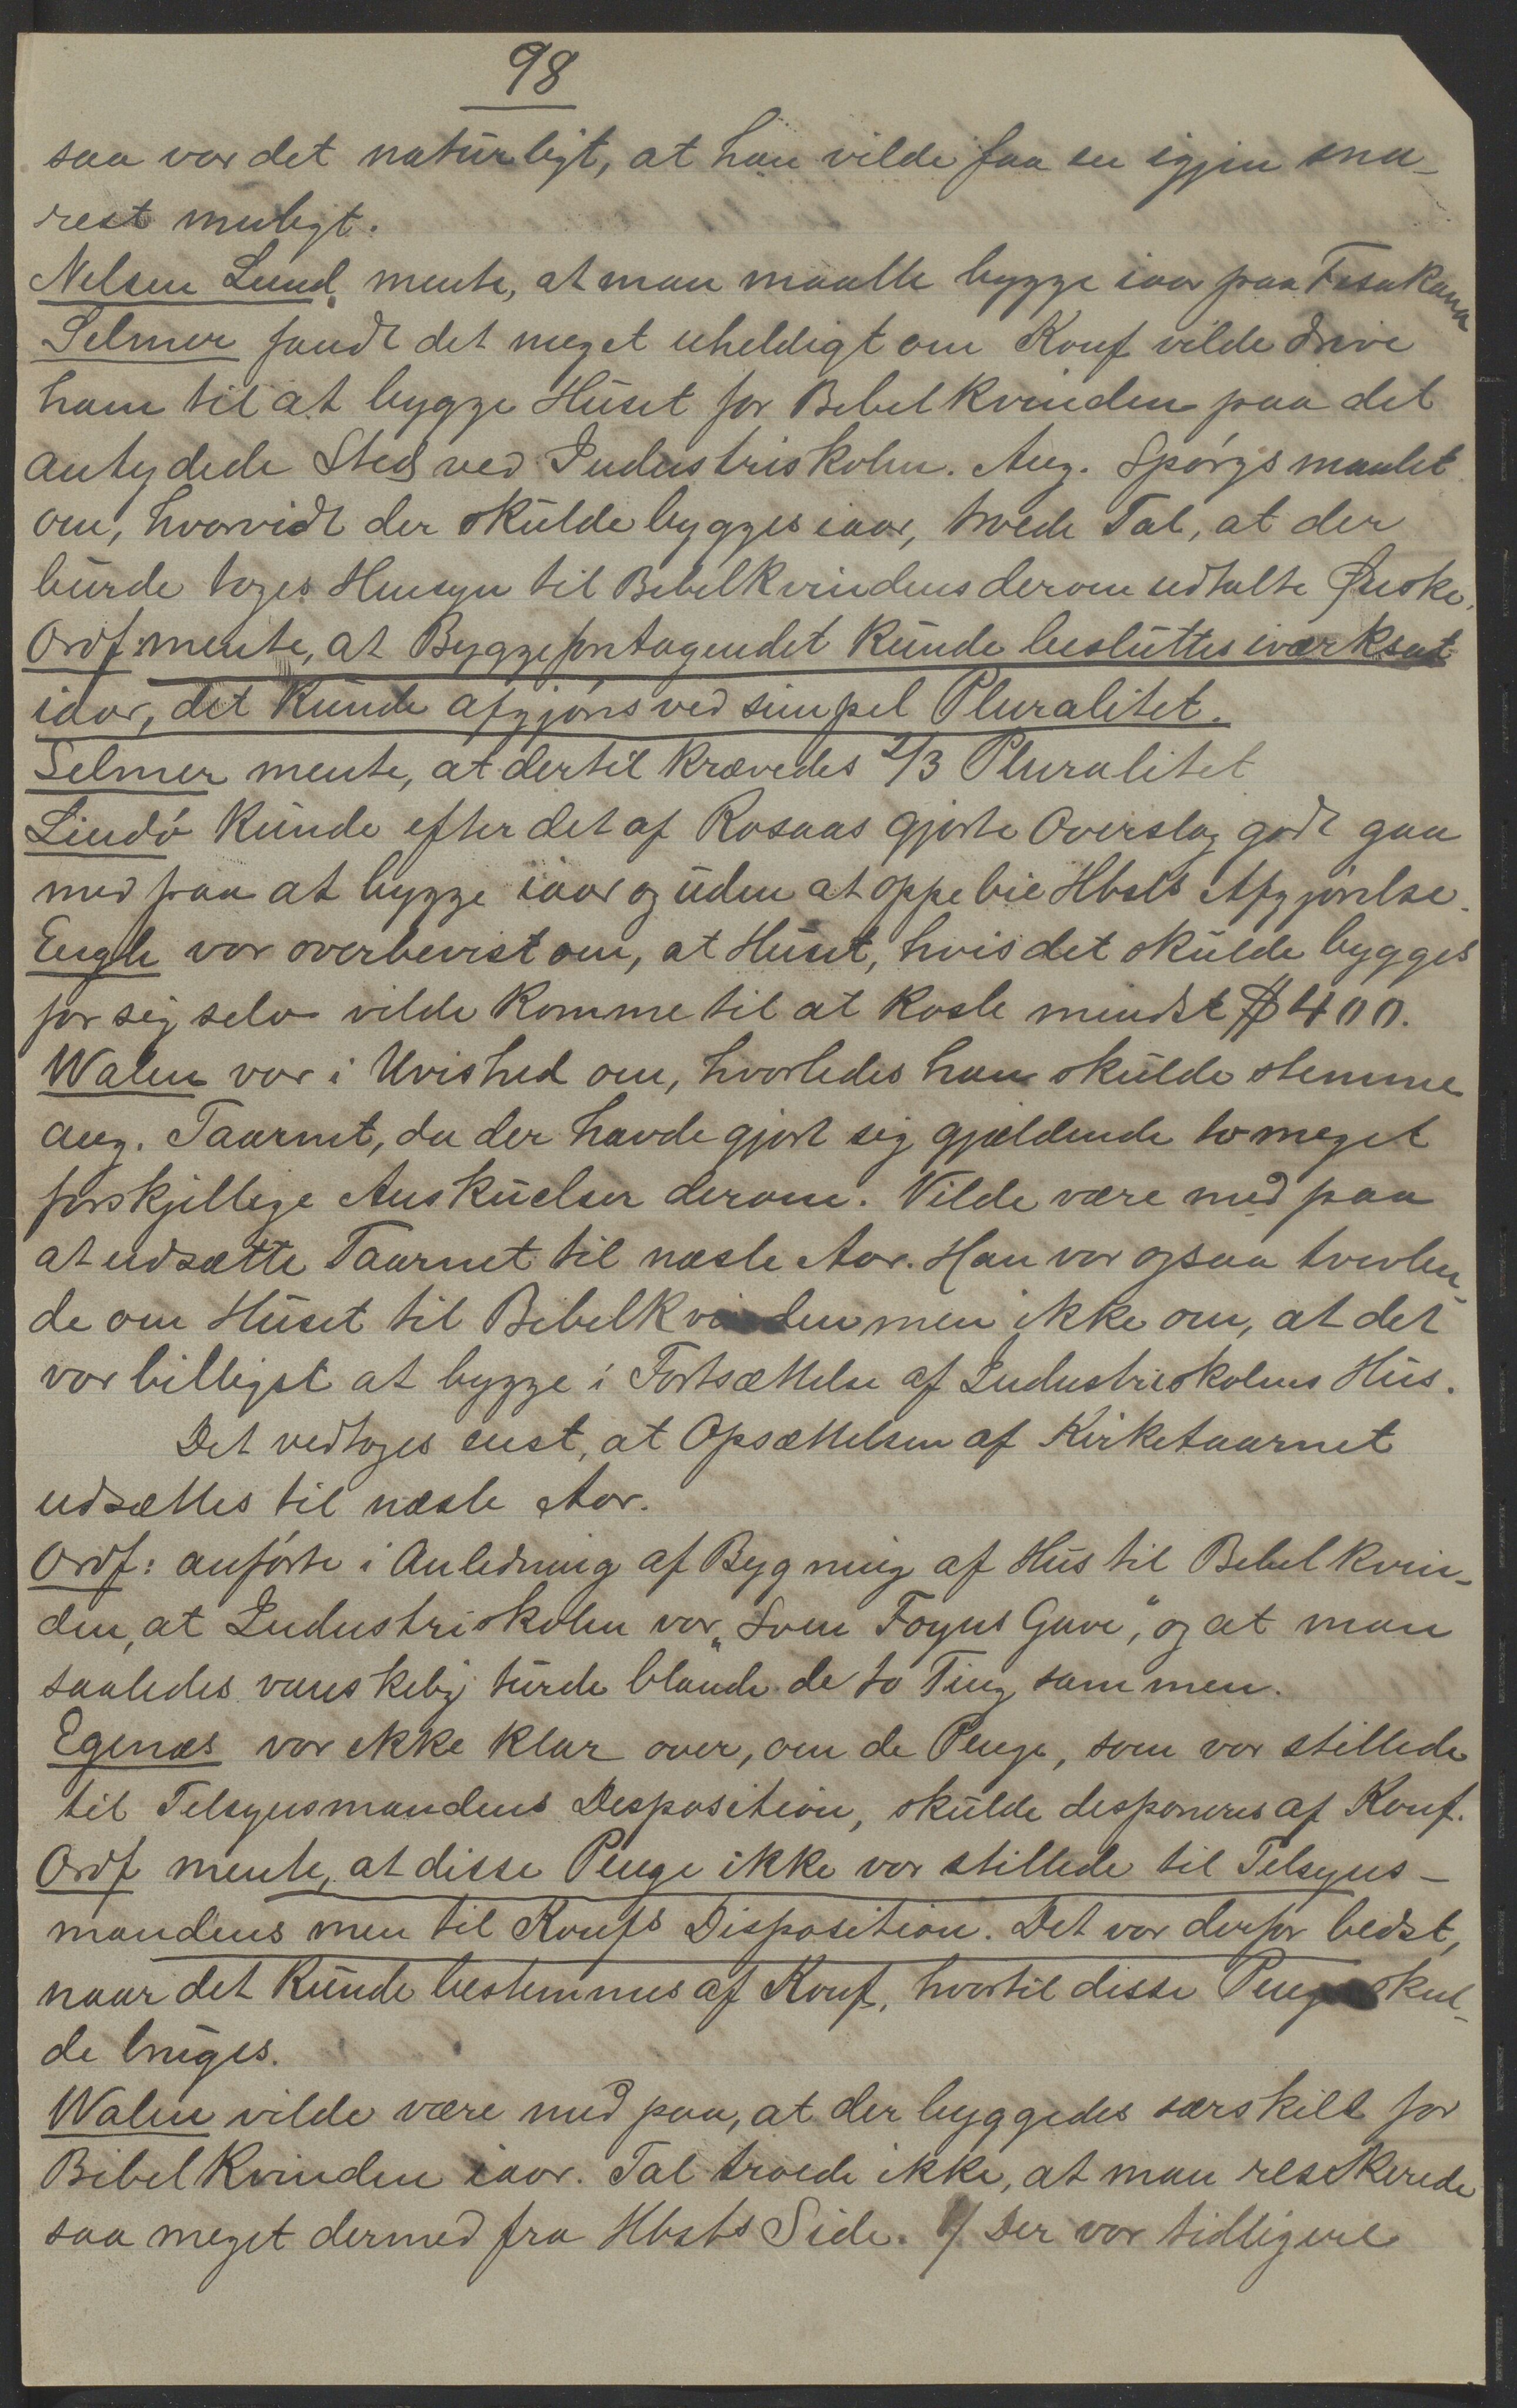 98
saa var det naturligt, at han vilde faa en igjen sna-
rest muligt.
Nelson Lund mente, at man maatte bygge iaar paa Fisakana
Selmer fandt det meget uheldigt om Konf vilde drive
ham til at bygge Huset for Bibelkvinden paa det
antydede Sted ved Industriskolen. Ang. Spørgsmaalet
om, hvorvidt der skulde bygges iaar, troede Tal, at der
burde tages Hensyn til Bibelkvindens derom udtalte Ønske.
Ordf: mente, at Byggeforetagendet kunde besluttes iværksat
iaar, det kunde afgjøres ved simpel Pluralitet.
Selmer mente, at dertil krævedes 2/3 Pluralitet
Lindø kunde efter det af Rosaas gjorte Overslag godt gaa
med paa at bygge iaar og uden at oppebie Hbsts Afgjørelse.
Engh var overbevist om, at Huset, hvis det skulde bygges
for sig selv vilde komme til at koste mindst $ 400.
Walen var i Uvished om, hvorledes han skulde stemme
ang. Taarnet, da der havde gjort sig gjældende to meget
forskjellige Anskuelser derom. Vilde være med paa
at udsætte Taarnet til næste Aar. Han var ogsaa tvivlen-
de om Huset til Bibelkvinden men ikke om, at det
var billigst at bygge i Fortsættelse af Industriskolens Hus.
Det vedtoges enst, at Opsættelsen af Kirketaarnet
udsættes til næste Aar.
Ordf: anførte i Anledning af Bygning af Hus til Bibelkvin-
den, at Industriskolen var „Sven Foyns Gave", og at man
saaledes vanskelig turde blande de to Ting sammen.
Egenæs var ikke klar over, om de Penge, som var stillede
til Tilsynsmandens Disposition, skulde disponeres af Konf.
Ordf mente, at disse Penge ikke var stillede til Tilsyns-
mandens men til Konfs Disposition. Det var derfor bedst,
naar det kunde bestemmes af Konf, hvortil disse Penge skul-
de bruges.
Walen vilde være med paa, at der byggedes særskilt for
Bibelkvinden iaar. Tal troede ikke, at man risikerede
saa meget dermed fra Hbsts Side. Der var tidligere